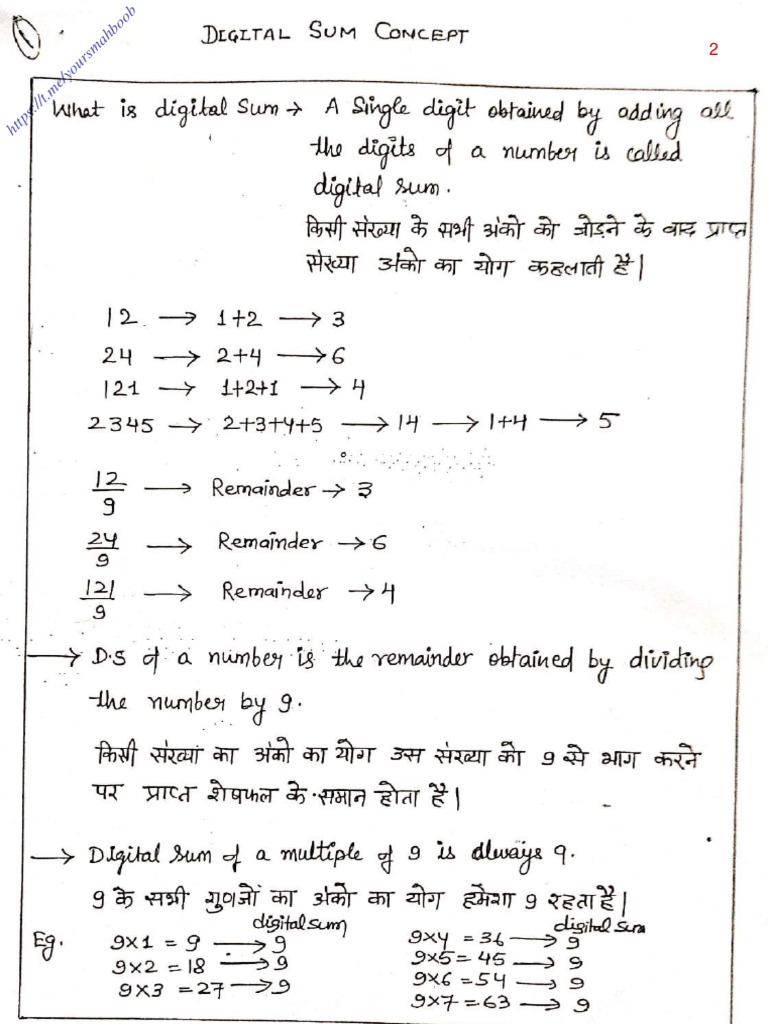 1
DIGITAL SUM CONCEPT
2
https://t.me/yoursmahboob
What is digital Sum → A Single digit obtained by adding all
the digits of a number is called
digital sum.
किसी संख्या के सभी अंको को जोड़ने के बाद प्राप्त
संख्या अंको का योग कहलाती है|
12 → 1+2 → 3
24 → 2+4 → 6
121 → 1+2+1 → 4
2345 → 2+3+4+5 → 14 → 1+4 → 5
12/9 → Remainder → 3
24/9 → Remainder → 6
121/9 → Remainder → 4
→ D.S of a number is the remainder obtained by dividing
the number by 9.
किसी संख्यां का अंको का योग उस संख्या को 9 से भाग करने
पर प्राप्त शेषफल के समान होता है|
→ Digital Sum of a multiple of 9 is always 9.
9 के सभी गुणजों का अंको का योग हमेशा 9 रहता है|
Eg. digital sum
9×1 = 9 → 9
9×2 = 18 → 9
9×3 = 27 → 9
digital sum
9×4 = 36 → 9
9×5 = 45 → 9
9×6 = 54 → 9
9×7 = 63 → 9